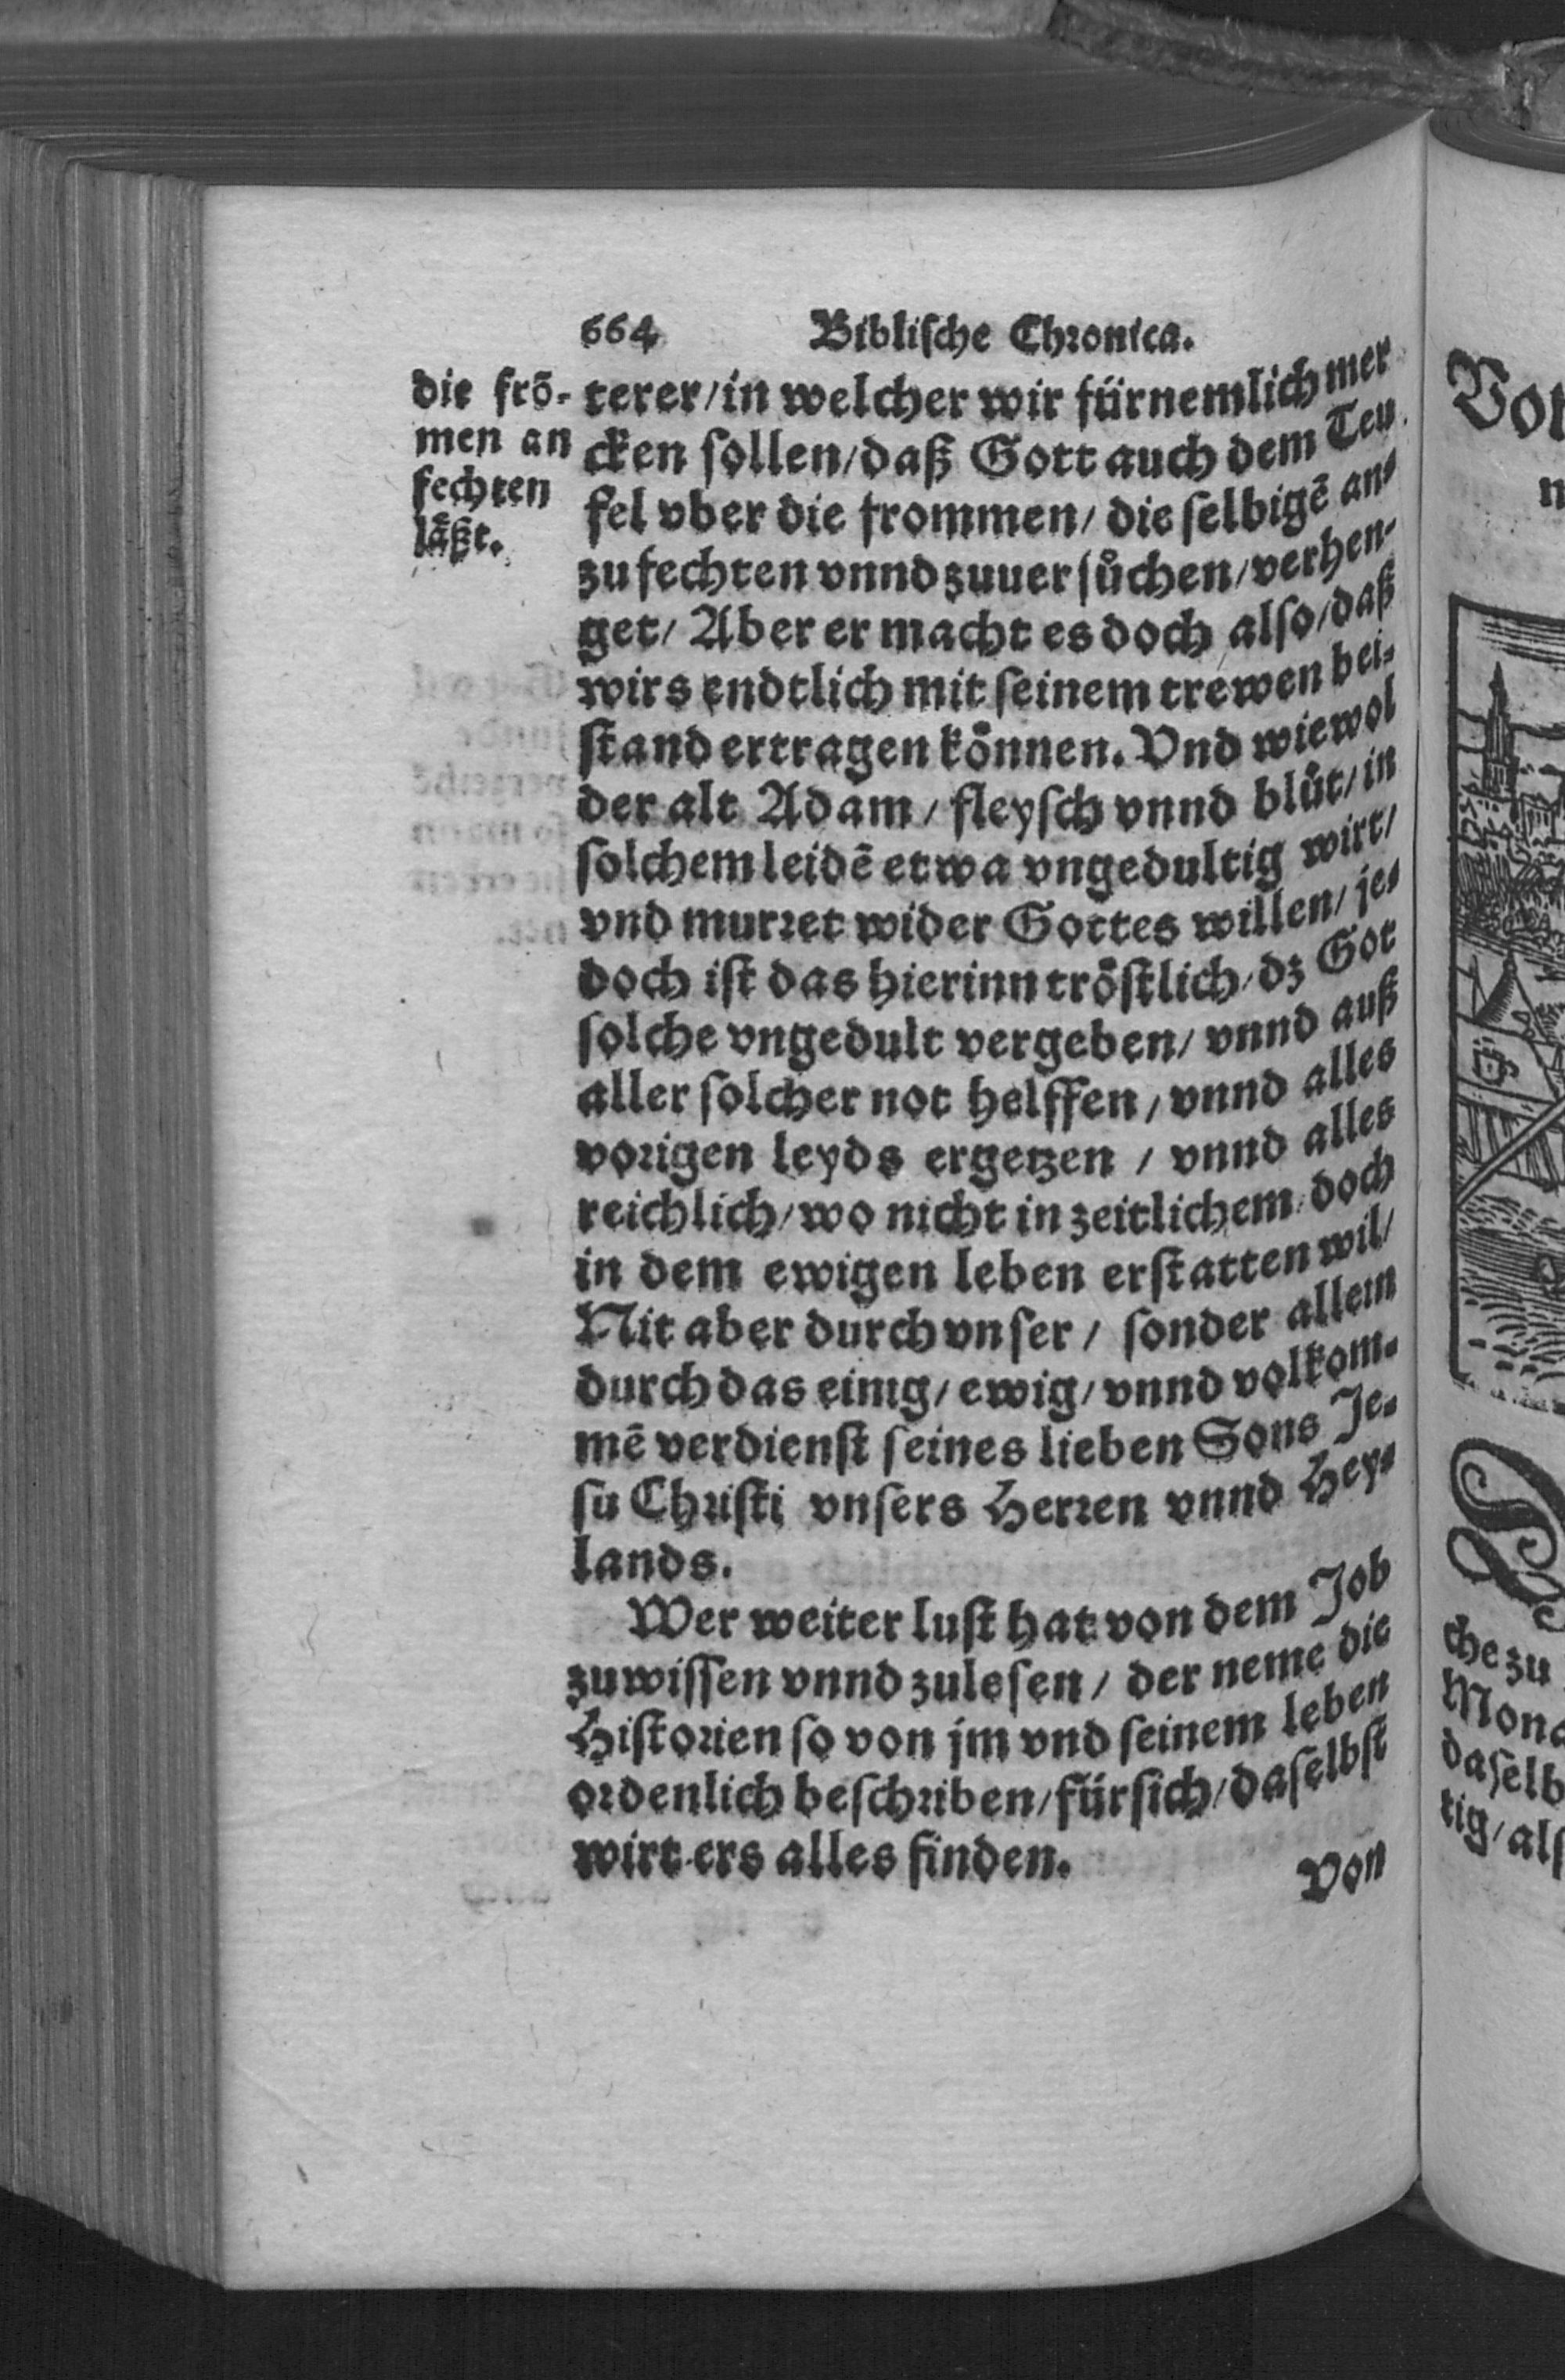 664 Biblische Chronica.
die frõ-
men an
fechten
låßt.
terer/in welcher wir fürnemlich mer
cken sollen/daß Gott auch dem Teu
fel vber die frommen/ die selbigẽ an-
zufechten vnnd zuuersůchen/verhen-
get/ Aber er macht es doch also/daß
wirs endtlich mit seinem trewen bei-
stand ertragen können. Vnd wiewol
der alt Adam/ fleysch vnnd blůt/in
solchem leidẽ etwa vngedultig wirt/
vnd murret wider Gottes willen/je-
doch ist das hierinn tröstlich/dz Got
solche vngedult vergeben/ vnnd auß
aller solcher not helffen/ vnnd alles
vorigen leyds ergetzen / vnnd alles
reichlich/wo nicht in zeitlichem/doch
in dem ewigen leben erstatten wil/
Nit aber durch vnser/ sonder allein
durch das einig/ewig/vnnd volkom-
mẽ verdienst seines lieben Sons Je-
su Christi vnsers Herren vnnd Hey-
lands.
Wer weiter lust hat von dem Job
zuwissen vnnd zulesen/ der neme die
Historien so von jm vnd seinem leben
ordenlich beschriben/für sich/daselbst
wirt ers alles finden.
Von
che zu
daselb
tig/als